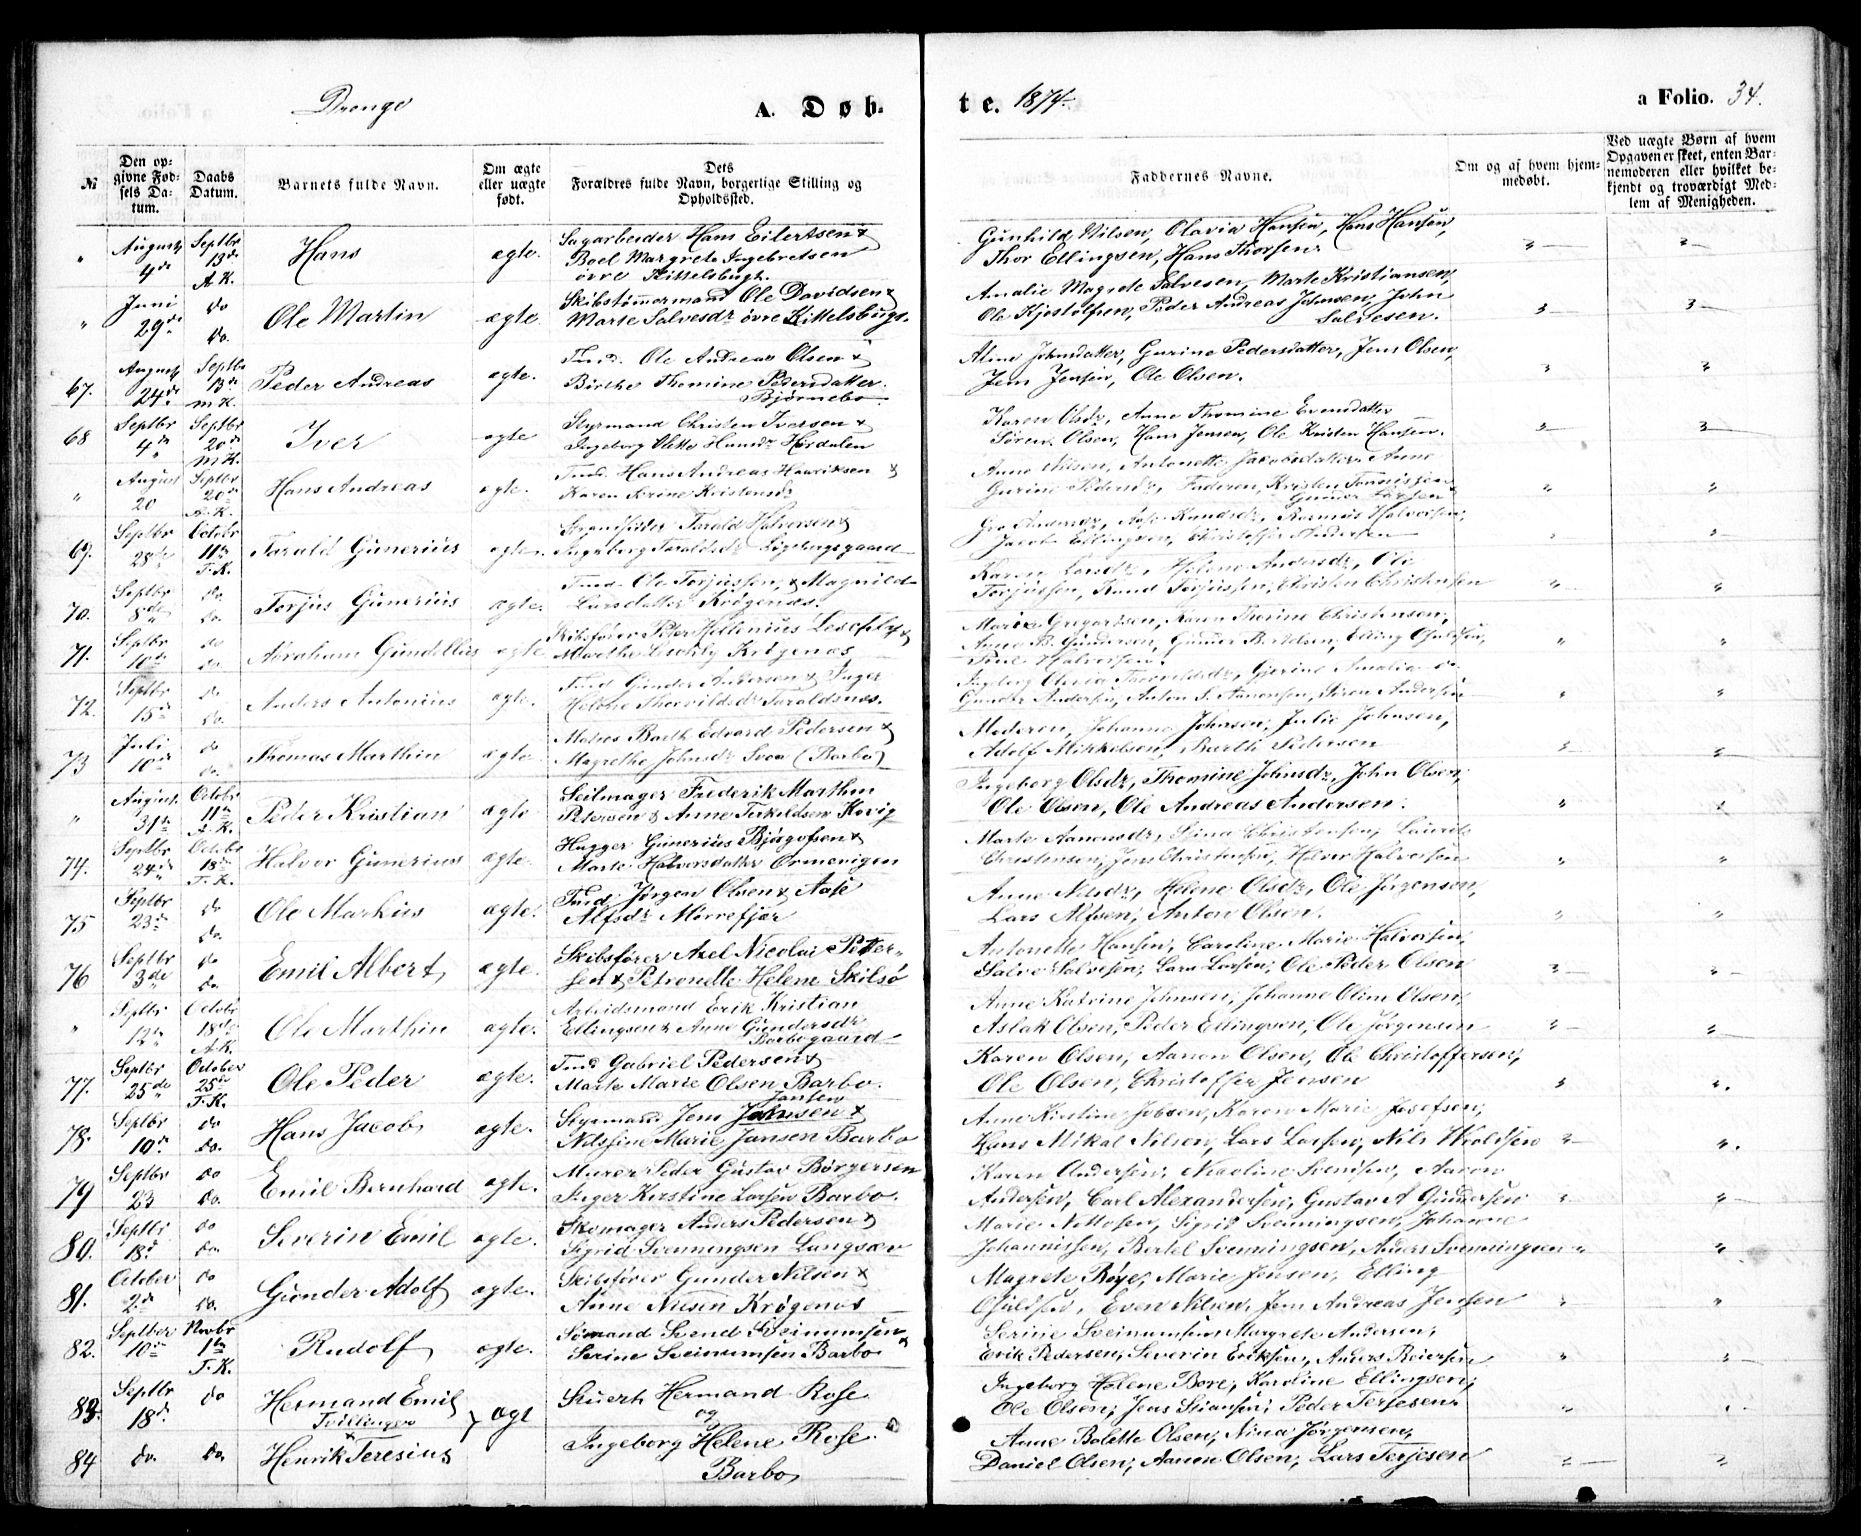 Drenge
A. Døb-
te. 1874
a Folio. 34.
№
Den op-
givne Fød-
sels Da-
tum.
Daabs
Datum.
Barnets fulde Navn.
Om ægte
eller uægte
født.
Dets
Forældres fulde Navn, borgerlige Stilling og
Opholdssted.
Faddernes Navne.
Om og af hvem hjem-
medøbt.
Ved uægte Børn af hvem
Opgaven er skeet, enten Bar-
nemoderen eller hvilket be-
kjendt og troværdigt Med-
lem af Menigheden.
" August 4de Septbr 13de A.K. Hans ægte. Sagarbeider Hans Eilertsen &
Boel Margrete Ingebretsen
øvre Kittelsbugt.
Gunhild Nilsen, Olavia Hansen, Hans Hansen,
Thor Ellingsen, Hans Thorsen.
" Juni 29de do do. Ole Martin ægte Skibstømmermand Ole Davidsen &
Marte Salvesdr øvre Kittelsbugt.
Amalie Magrete Salvesen, Marte Kristiansen,
Ole Kjøstolfsen, Peder Andreas Johnsen, John
Salvesen.
67. August 24de Septbr 13de M.K. Peder Andreas ægte. Tmd. Ole Andreas Olsen &
Birthe Thomine Pedersdatter.
Bjørnebo.
Aline Johnsdatter, Gurine Pedersdatter, Jens Olsen,
Jens Jensen, Ole Olsen.
68 Septbr 4de Septbr 20de M.K. Iver ægte Styrmand Christen Iversen &
Ingeborg Hansdr Hørdalen
Karen Olsdr, Anne Thomine Evensdatter
Søren Olsen, Hans Jensen, Ole Kristen Hansen.
" August 20 Septbr 20de A.K. Hans Andreas ægte. Tmd. Hans Andreas Henriksen &
Karen Kristensdr
Anne Nilsen, Antonette Jacobsdatter, Anne
Gurine Pedersdr, Faderen, Kristen Tønnissen
Gunder Larsen
69. Septbr 28de Octobr 11te T.K. Tarald Gunerius ægte. Strandsidder Tarald Halvorsen &
Ingeborg Taraldsdr
Gro Andersdr, Aase Knudsdr, Rasmus Halvorsen,
Jacob Ellingsen, Christoffer Andersen
70. Septbr 8de do do. Torjus Gunerius ægte. Tmd. Ole Torjussen, & Magnild
Larsdatter Krøgenes.
Karen Larsdr, Helene Andersdr, Ole
Torjussen, Knud Torjussen, Christen Christensen
71. Septbr 10de do do. Abraham Gundelius ægte Skibsfører Peter Hellenius Leschly &
Marthe Leschly Krøgenes
Marie Gregersen, Karen Therine Christensen,
Anne B. Gundersen, Gunder Bertelsen, Elling Osuldsen,
Poul Halvorsen.
72. Septbr 15de do do. Anders Antonius ægte. Tmd Gunder Andersen & Inger
Helene Thorvildsdr Taraldsnes.
Ingeborg Olevia Thorvildsdr, Gjerine Amalie do
Gunder Andersen, Anton S. Aanonsen, Søren Andersen
73 Juli 10de do do. Thomas Marthin ægte. Matros Barth Edvard Pedersen &
Magrethe Johnsdr Svoa (Barbo)
Moderen, Johanne Johnsen, Julie Johnsen,
Adolf Mikkelsen, Barth Pedersen
" August 31te Octobr 11te A.K. Peder Kristian ægte Seilmager Frederik Marthin
Petersen & Anne Terkildsen Kovig
Ingeborg Olsdr, Thomine Johnsdr, John Olsen,
Ole Olsen, Ole Andreas Andersen.
74. Septbr 24de Octobr 18de T.K. Halvor Gunerius ægte. Hugger Gunerius Bjugofsen &
Marte Halvorsdatter Ormevigen
Marte Aanonsdr, Stina Christensen, Laurits
Christensen, Jens Christensen, Halvor Halvorsen
75 Septbr 23de do do. Ole Markus ægte. Tmd Jørgen Olsen & Aase
Alfsdr Mørrefjær
Anne Nilsdr, Helene Olsdr, Ole Jørgensen,
Lars Alfsen, Anton Olsen.
76 Septbr 3de do do. Emil Albert ægte Skibsfører Axel Nicolai Peter-
sen & Petronelle Helene Skilsø
Antonette Hansen, Caroline Marie Halvorsen,
Salve Salvesen, Lars Larsen, Ole Peder Olsen
" Septbr 12te Octobr 18de A.K. Ole Marthin ægte. Arbeidsmand Erik Kristian
Ellingsen & Anne Gundersdr
Barbogaard
Anne Katrine Johnsen, Johanne Oline Olsen,
Aslak Olsen, Peder Ellingsen, Ole Jørgensen
77. Septbr 25de October 25de T.K. Ole Peder ægte. Tmd Gabriel Pedersen &
Marte Marie Olsen Barbo.
Karen Olsen, Aanon Olsen, Ole Christoffersen,
Ole Olsen, Christoffer Jensen
78. Septbr 19de do do. Hans Jacob ægte. Styrmand Jens Jansen Johnsen &
Nilsine Marie Jansen Barbo
Anne Kirstine Jobsen, Karen Marie Josefsen,
Hans Mikal Nilsen, Lars Larsen, Nils Woldsen
79 Septbr 23 do do. Emil Bernhard ægte. Murer Peder Gustav Børgersen
Inger Kirstine Larsen Barbo.
Karen Andersen, Nicoline Svensen, Aanon
Andersen, Carl Alexandersen, Gustav A Gundersen
80. Septbr 18de do do. Severin Emil ægte. Skomager Anders Pedersen &
Sigrid Svenningsen Langsæv
Marie Nottosen, Sigrid Svenningsen, Johanne
Johannissen, Bertel Svenningsen, Anders Svenningsen
81. October 2de do do. Gunder Adolf ægte. Skibsfører Gunder Nilsen &
Anne Nilsen Krøgenes
Magrete Røye, Marie Jensen, Elling
Osuldsen, Even Nilsen, Jens Andreas Jensen
82. Septber 10de Novbr 1te T.K. Rudolf ægte. Sømand Svend Sveinumsen &
Serine Sveinumsen Barbo
Serine Sveinumsen, Margrete Andersen,
Erik Pedersen, Severin Eriksen, Anders Reiersen
83. Septbr 18de do Hermand Emil
Tvillinger
ægte Stuert Hermand Rose
og
Ingeborg Helene Bore, Karoline Ellingsen,
Ole Olsen, Jens Stiansen, Peder Terjesen
84 do. do. Henrik Teresius
Ingeborg Helene Rose.
Barbo
Anne Bolette Olsen, Nina Jørgensen,
Daniel Olsen, Aanon Olsen, Lars Terjesen